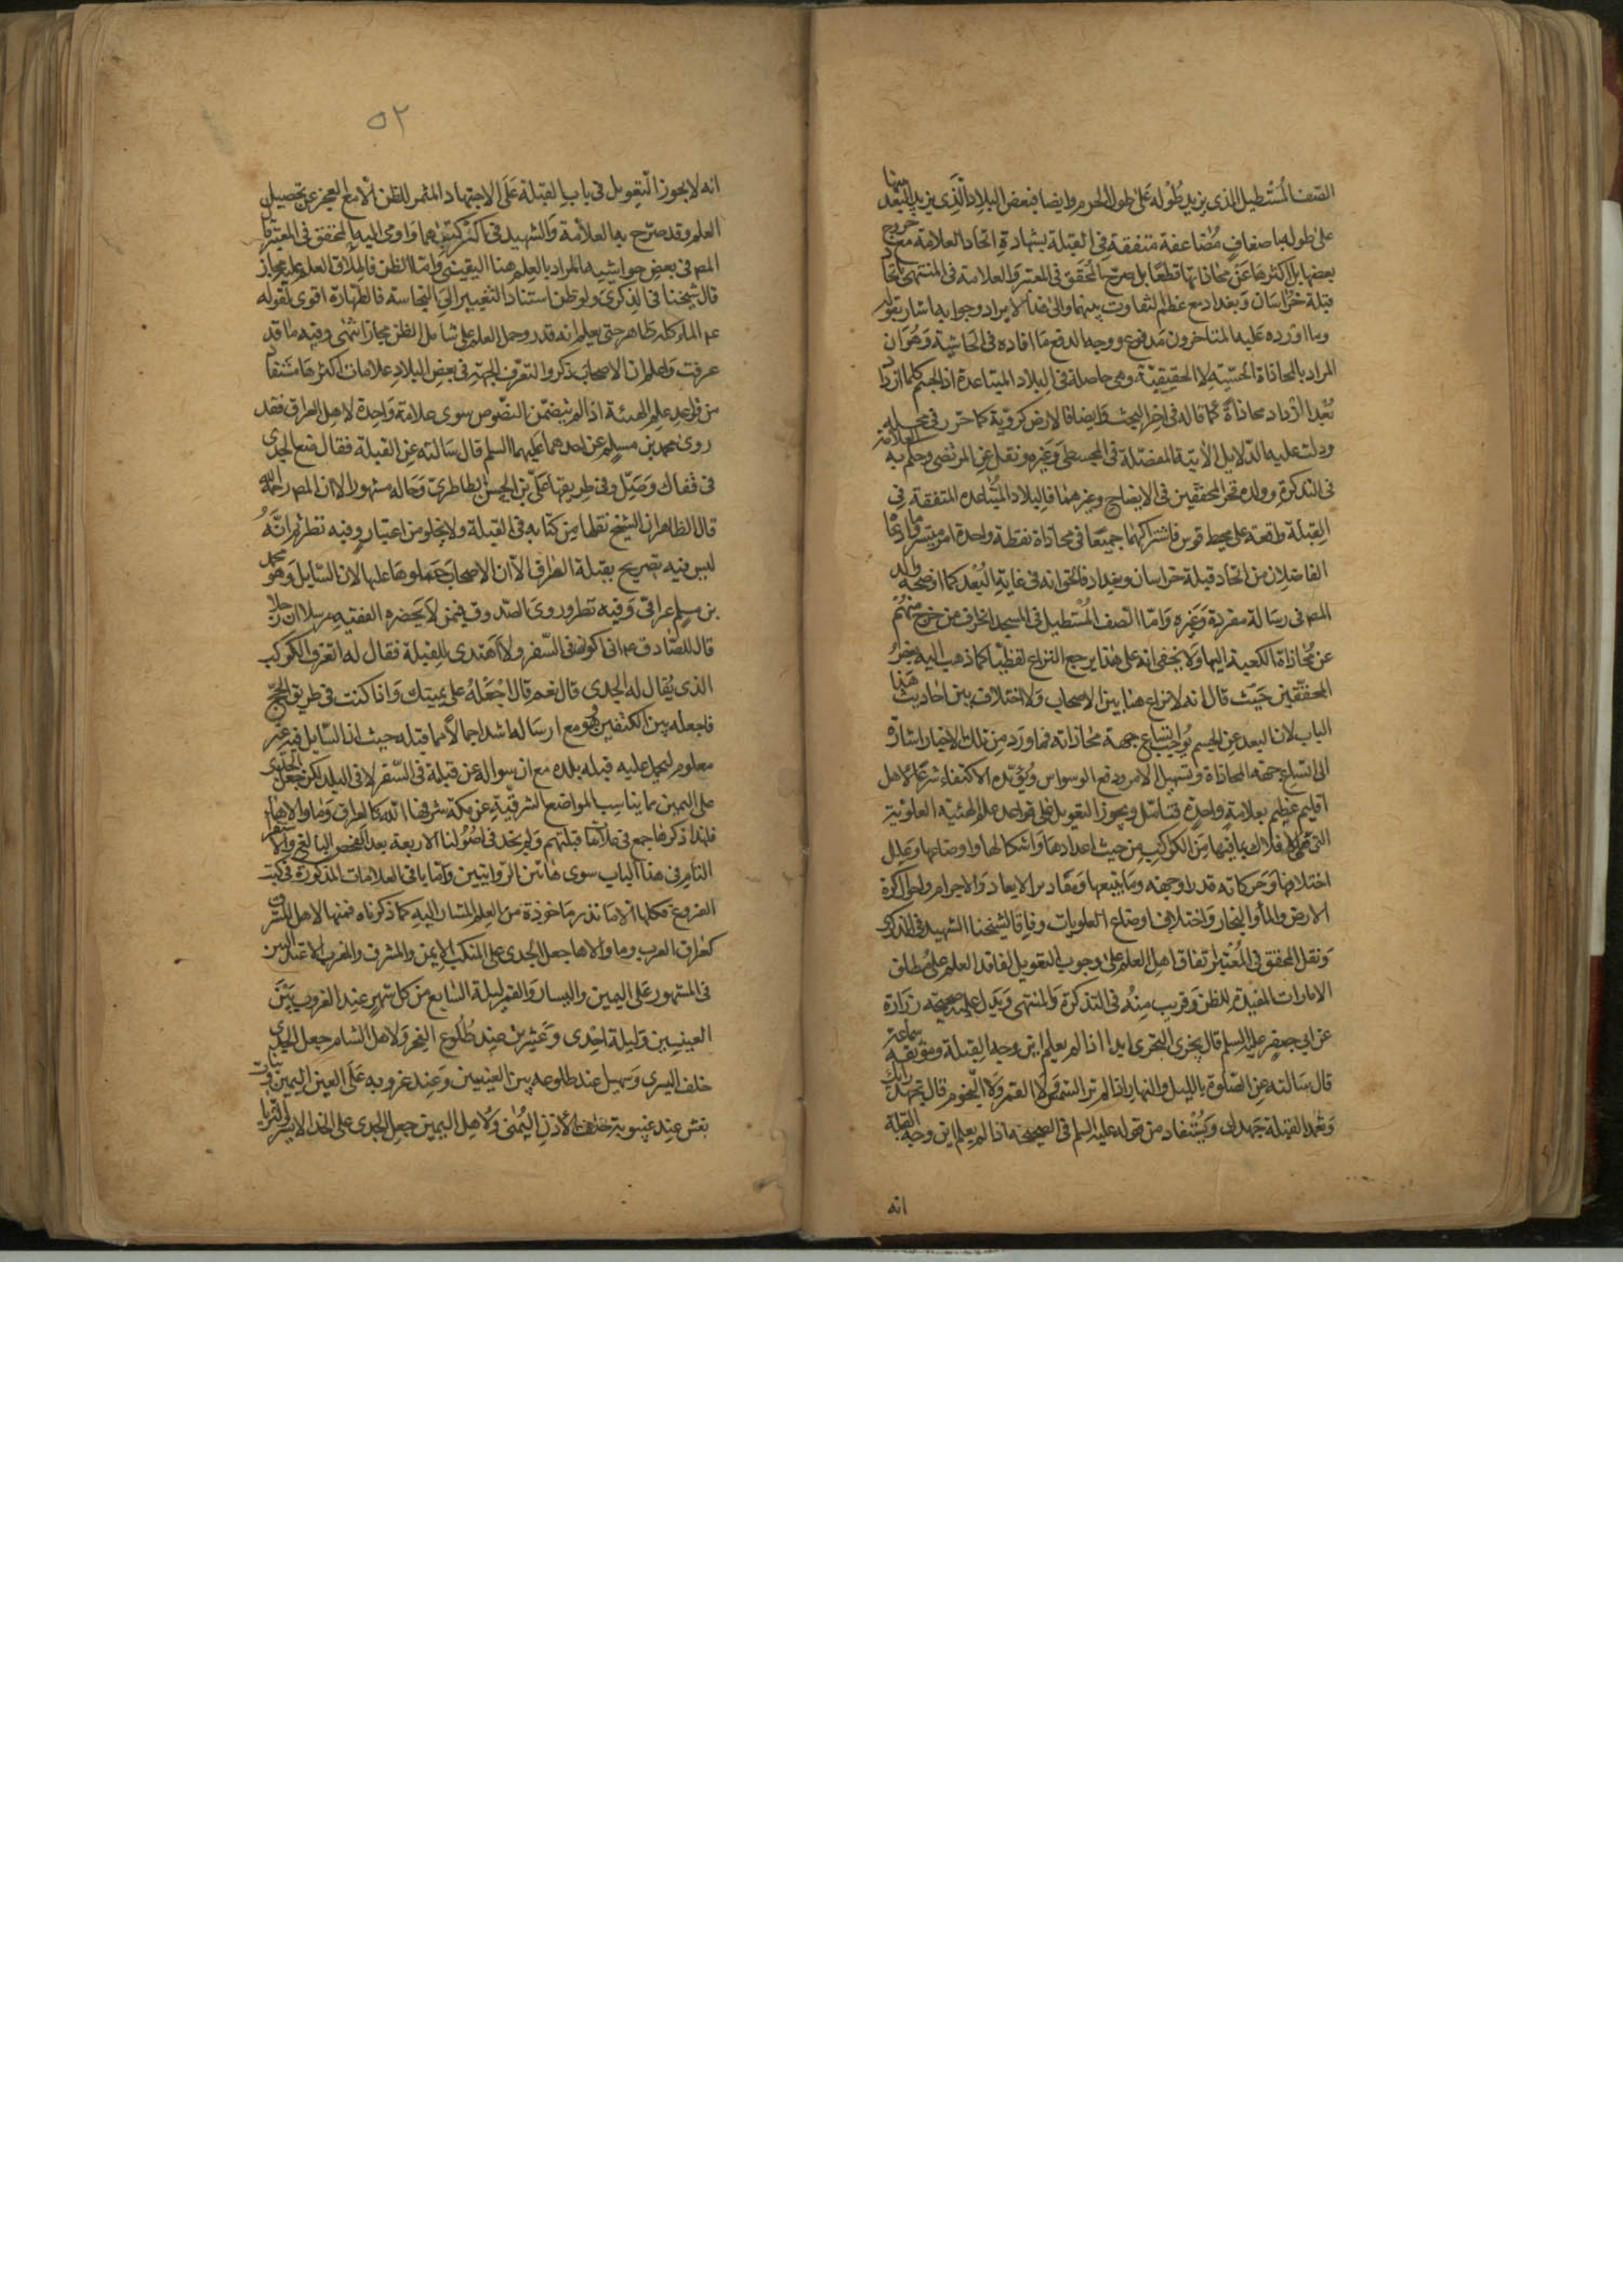 الصف المستطيل الذى يزيد طوله على طول الحرم وايضا فبعض البلاد الذى يزيد البعد بينها
على طوله باضعاف مضاعفة متفقة فى القبلة بشهادة اتحاد العلامة مع خروج
بعضها بل اكثرها عن محاذاتها قطعا بل صرح المحقق فى المعتبر والعلامة فى المنتهى باتحاد
قبلة خراسان وبغداد مع عظم التفاوت بينهما والى هذا الايراد وجوابه اشار بقوله
وما اورده عليه المتاخرون مدفوع ووجه الدفع ما افاده فى الحاشية وهو ان
المراد بالمحاذاة الحسية لا الحقيقية وهى حاصلة فى البلاد المتباعدة اذ الجسم كلما ازداد
بعدا ازداد محاذاة كما قاله فى اخر البحث وايضا فالارض كروية كما حرر فى محله
ودلت عليه الدلايل الاتية المفصلة فى المجسطى وغيره ونقل عن المرتضى وحكم به العلامة
فى التذكرة وولده فخر المحققين فى الايضاح وغيرهما فالبلاد المتباعده المتفقة فى
القبلة واقعة على محيط قوس فاشتراكهما جميعا فى محاذاة نقطة واحدة امر متيسر وما ادعا
الفاضلان من اتحاد قبلة خراسان وبغداد فالحق انه فى غاية البعد كما اوضحه والد
المص فى رسالة مفردة وغيره واما الصف المستطيل فى المسجد الحرام فمن خرج منهم
عن محاذاة الكعبة اليها ولا يخفى انه على هذا يرجع النزاع لفظيا كما ذهب اليه بعض
المحققين حيث قال انه لا نزاع هنا بين الاصحاب ولا اختلاف بين احاديث هذا
الباب لان البعد عن الجسم يوجب اتساع جهة محاذاته فما ورد من تلك الاخبار اشارة
الى اتساع جهة المحاذاة وتسهيل الامر ودفع الوسواس ويؤيده الاكتفاء شرعا لاهل
اقليم عظيم بعلامة واحدة فتامل ويجوز التعويل على قواعد علم الهيئة العلوية
التى هى الافلاك بما فيها من الكواكب من حيث اعدادها واشكالها واوضاعها وعلل
اختلافها وحركاته قدرا وجهة وما يتبعها ومقادير الابعاد والاجرام واحوال كرة
الارض والماء والبخار واختلاف اوضاع العلويات وفاقا لشيخنا الشهيد فى الذكرى
ونقل المحقق فى المعتبر اتفاق اهل العلم على وجوب التعويل لفاقد العلم على مطلق
الامارات المفيدة للظن وقريب منه فى التذكرة والمنتهى ويدل عليه صحيحة زرارة
عن ابى جعفر عليه السلم قال يجزى التحرى ابدا اذا لم يعلم اين وجه القبلة وموثقة سماعة
قال سالته عن الصلوة بالليل والنهار اذا لم تر الشمس ولا القمر ولا النجوم قال تجتهد رايك
وتعمد القبلة جهدك ويستفاد من قوله عليه السلم فى الصحيحة اذا لم يعلم اين وجه القبلة
انه
٥٢
انه لا يجوز التعويل فى باب القبلة على الاجتهاد المثمر للظن الا مع العجز عن تحصيل
العلم وقد صرح به العلامة والشهيد فى اكثر كتبهما واومى اليه المحقق فى المعتبر قال
المص فى بعض حواشيه المراد بالعلم هنا اليقينى واما الظن فاطلاق العلم عليه مجاز
قال شيخنا فى الذكرى ولو ظن استناد التغيير الى النجاسة فالطهارة اقوى لقوله
ع الماء كله طاهر حتى يعلم انه قذر وحمل العلم على شامل الظن مجاز انتهى وفيه ما قد
عرفت واعلم ان الاصحاب ذكروا لتعرف الجهة فى بعض البلاد علامات اكثرها مستفاد
من قواعد علم الهيئة اذا لم يتضمن النصوص سوى علامة واحدة لاهل العراق فقد
روى محمد بن مسلم عن احدهما عليهما السلم قال سالته عن القبلة فقال ضع الجدى
فى قفاك وصل وفى طريقها على بن الحسن الطاطرى وحاله مشهور الا ان المص رحمه الله
قال الظاهر ان الشيخ نقلها من كتابه فى القبلة ولا يخلو من اعتبار وفيه نظر ثم انه
ليس فيه تصريح بقبلة العراق الا ان الاصحاب حملوها عليها لان السايل وهو محمد
بن مسلم عراقى وفيه نظر وروى الصدوق فيمن لا يحضره الفقيه مرسلا ان رجلا
قال للصادق ع انى اكون فى السفر ولا اهتدى للقبلة فقال له اتعرف الكوكب
الذى يقال له الجدى قال نعم قال اجعله على يمينك واذا كنت فى طريق الحج
فاجعله بين الكتفين وهو مع ارساله اشد اجمالا مما قبله حيث ان السايل فيه غير
معلوم ليحمل عليه قبله بلده مع ان سواله عن قبلة فى السفر لا فى البلد لكن جعل الجدى
على اليمين مما يناسب المواضع الشرقية عن مكة شرفها الله كالعراق وما والاها
فلهذا ذكرها جمع فى علامات قبلتهم ولم نجد فى اصولنا الاربعة بعد الفحص البالغ والاستقراء
التام فى هذا الباب سوى هاتين الروايتين واما باقى العلامات المذكورة فى كتب
الفروع فكلها الا ما ندر ماخوذة من العلم المشار اليه كما ذكرناه فمنها لاهل المشرق
كعراق العرب وما والاها جعل الجدى على المنكب الايمن والمشرق والمغرب الاعتداليين
فى المشهور على اليمين واليسار والقمر ليلة السابع من كل شهر عند الغروب بين
العينين وليلة احدى وعشرين عند طلوع الفجر ولاهل الشام جعل الجدى
خلف اليسرى وسهيل عند طلوعه بين العينين وعند غروبه على العين اليمنى وبنات
نعش عند غيبوبته خلف الاذن اليمنى ولاهل اليمين جعل الجدى على الخد الايسر والثريا